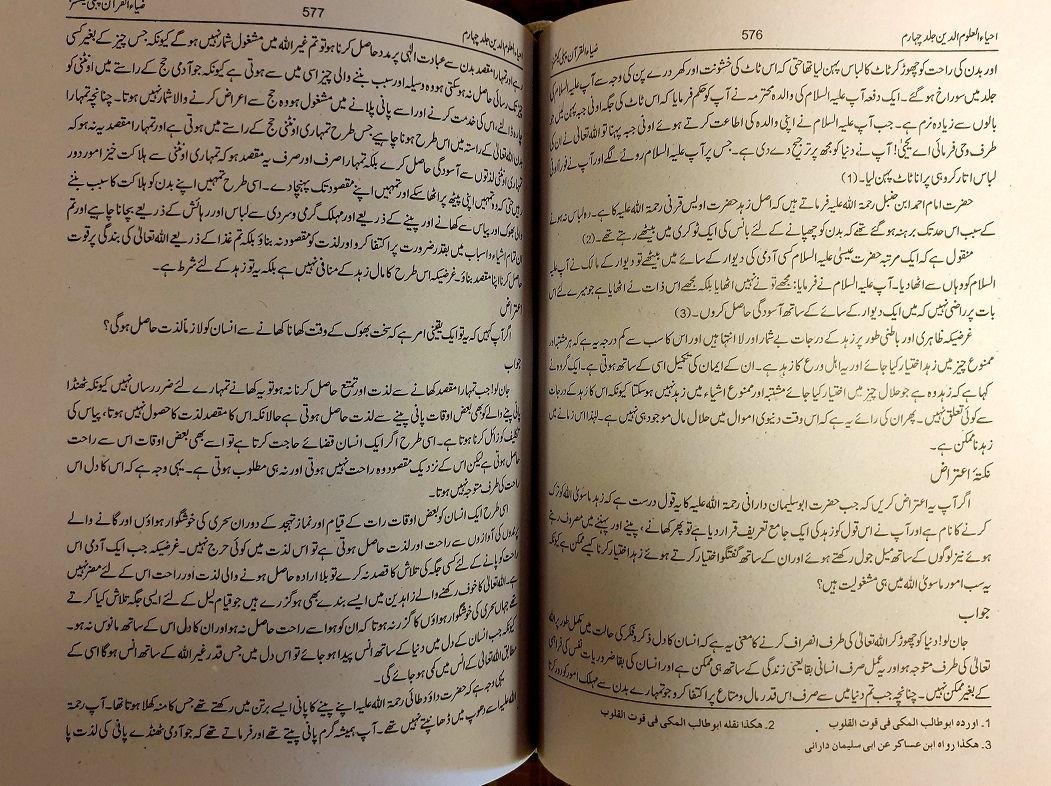 احیاء العلوم الدین جلد چہارم
576
ضیاء القرآن پبلی کیشنز
اور بدن کی راحت کو چھوڑ کر ٹاٹ کا لباس پہن لیا تھا حتی کہ اس ٹاٹ کی خشونت اور کھردرے پن کی وجہ سے آپ علیہ السلام کی
جلد میں سوراخ ہو گئے۔ ایک دفعہ آپ علیہ السلام کی والدہ محترمہ نے آپ کو حکم فرمایا کہ اس ٹاٹ کی جگہ اونی جبہ پہن لیں جو
بالوں سے زیادہ نرم ہے۔ جب آپ علیہ السلام نے اپنی والدہ کی اطاعت کرتے ہوئے اونی جبہ پہنا تو اللہ تعالیٰ نے ان کی
طرف وحی فرمائی اے یحییٰ! آپ نے دنیا کو مجھ پر ترجیح دے دی ہے۔ جس پر آپ علیہ السلام رونے لگے اور آپ نے فوراً اونی
لباس اتار کر وہی پرانا ٹاٹ پہن لیا۔ (1)
حضرت امام احمد ابن حنبل رحمۃ اللہ علیہ فرماتے ہیں کہ اصل زہد حضرت اویس قرنی رحمۃ اللہ علیہ کا ہے۔ وہ لباس نہ ہونے
کے سبب اس حد تک برہنہ ہو گئے تھے کہ بدن کو چھپانے کے لئے بانس کی ایک ٹوکری میں بیٹھے رہتے تھے۔ (2)
منقول ہے کہ ایک مرتبہ حضرت عیسیٰ علیہ السلام کسی آدمی کی دیوار کے سائے میں بیٹھے تو دیوار کے مالک نے آپ علیہ
السلام کو وہاں سے اٹھا دیا۔ آپ علیہ السلام نے فرمایا: مجھے تو نے نہیں اٹھایا بلکہ مجھے اس ذات نے اٹھایا ہے جو میرے لئے اس
بات پر راضی نہیں کہ میں ایک دیوار کے سائے کے ساتھ آسودگی حاصل کروں۔ (3)
غرضیکہ ظاہری اور باطنی طور پر زہد کے درجات بے شمار اور لا انتہا ہیں اور اس کا سب سے کم درجہ یہ ہے کہ ہر مشتبہ اور
ممنوع چیز میں زہد اختیار کیا جائے اور یہ اہل ورع کا زہد ہے۔ ان کے ایمان کی تکمیل اسی کے ساتھ ہوتی ہے۔ ایک گروہ نے
کہا ہے کہ زہد وہ ہے جو حلال چیز میں اختیار کیا جائے مشتبہ اور ممنوع اشیاء میں زہد نہیں ہو سکتا کیونکہ اس کا زہد کے درجات
سے کوئی تعلق نہیں۔ پھر ان کی رائے یہ ہے کہ اس وقت دنیوی اموال میں حلال مال موجود ہی نہیں ہے۔ لہٰذا اس زمانے میں
زہد ناممکن ہے۔
نکتۂ اعتراض
اگر آپ یہ اعتراض کریں کہ جب حضرت ابو سلیمان دارانی رحمۃ اللہ علیہ کا یہ قول درست ہے کہ زہد ماسوی اللہ کو ترک
کرنے کا نام ہے اور آپ نے اس قول کو زہد کی ایک جامع تعریف قرار دیا ہے تو پھر کھانے، پینے اور پہننے میں مصروف رہتے
ہوئے نیز لوگوں کے ساتھ میل جول رکھتے ہوئے اور ان کے ساتھ گفتگو اختیار کرتے ہوئے زہد اختیار کرنا کیسے ممکن ہے کیونکہ
یہ سب امور ماسوی اللہ میں ہی مشغولیت ہیں؟
جواب
جان لو! دنیا کو چھوڑ کر اللہ تعالیٰ کی طرف انصراف کرنے کا معنی یہ ہے کہ انسان کا دل ذکر و فکر کی حالت میں مکمل طور پر اللہ
تعالیٰ کی طرف متوجہ ہو اور یہ عمل صرف انسانی بقا یعنی زندگی کے ساتھ ہی ممکن ہے اور انسان کی بقا ضروریات نفس کی فراہمی
کے بغیر ممکن نہیں۔ چنانچہ جب تم دنیا میں سے صرف اس قدر مال و متاع پر اکتفا کرو جو تمہارے بدن سے مہلک امور کو دور کرتا
1۔ اورده ابوطالب المکی فی قوت القلوب
2۔ هکذا نقله ابوطالب المکی فی قوت القلوب
3۔ هکذا رواه ابن عساکر عن ابی سلیمان دارانی
احیاء العلوم الدین جلد چہارم
577
ضیاء القرآن پبلی کیشنز
رہے اور تمہارا مقصد بدن سے عبادت الٰہی پر مدد حاصل کرنا ہو تو تم غیر اللہ میں مشغول شمار نہیں ہو گے کیونکہ جس چیز کے بغیر کسی
چیز تک رسائی حاصل نہ ہو سکتی ہو وہ وسیلہ اور سبب بننے والی چیز اسی میں سے ہوتی ہے کیونکہ جو آدمی حج کے راستے میں اونٹنی کو
چارہ ڈالنے، اس کی خدمت کرنے اور اسے پانی پلانے میں مشغول ہو وہ حج سے اعراض کرنے والا شمار نہیں ہوتا۔ چنانچہ تمہارا
بدن اللہ تعالیٰ کے راستہ میں اس طرح ہونا چاہیے جس طرح تمہاری اونٹنی حج کے راستے میں ہوتی ہے اور تمہارا مقصد یہ نہ ہو کہ
تمہاری اونٹنی لذتوں سے آسودگی حاصل کرے بلکہ تمہارا صرف اور صرف یہ مقصد ہو کہ تمہاری اونٹنی سے ہلاکت خیز امور دور
رہیں حتی کہ وہ تمہیں اپنی پیٹھ پر اٹھا سکے اور تمہیں اپنے مقصود تک پہنچا دے۔ اسی طرح تمہیں اپنے بدن کو ہلاکت کا سبب بننے
والی بھوک اور پیاس سے کھانے اور پینے کے ذریعے اور مہلک گرمی و سردی سے لباس اور رہائش کے ذریعے بچانا چاہیے اور تم
ان تمام اشیاء و اسباب میں بقدر ضرورت پر اکتفا کرو اور لذت کو مقصود نہ بناؤ بلکہ تم غذا کے ذریعے اللہ تعالیٰ کی بندگی پر قوت
حاصل کرنا اپنا مقصد بناؤ۔ غرضیکہ اس طرح کا مال زہد کے منافی نہیں ہے بلکہ یہ تو زہد کے لئے شرط ہے۔
اعتراض
اگر آپ کہیں کہ یہ تو ایک یقینی امر ہے کہ سخت بھوک کے وقت کھانا کھانے سے انسان کو لازماً لذت حاصل ہو گی؟
جواب
جان لو! جب تمہارا مقصد کھانے سے لذت اور تمتع حاصل کرنا نہ ہو تو یہ کھانے تمہارے لئے ضرر رساں نہیں کیونکہ ٹھنڈا
پانی پینے والے کو بھی بعض اوقات پانی پینے سے لذت حاصل ہوتی ہے حالانکہ اس کا مقصد لذت کا حصول نہیں ہوتا، پیاس کی
تکلیف کو زائل کرنا ہوتا ہے۔ اسی طرح اگر ایک انسان قضائے حاجت کرتا ہے تو اسے بھی بعض اوقات اس سے راحت
حاصل ہوتی ہے لیکن اس کے نزدیک مقصود وہ راحت نہیں ہوتی اور نہ ہی مطلوب ہوتی ہے۔ یہی وجہ ہے کہ اس کا دل اس
راحت کی طرف متوجہ نہیں ہوتا۔
اسی طرح ایک انسان کو بعض اوقات رات کے قیام اور نماز تہجد کے دوران سحری کی خوشگوار ہواؤں اور گانے والے
پرندوں کی آوازوں سے راحت اور لذت حاصل ہوتی ہے تو اس لذت میں کوئی حرج نہیں۔ غرضیکہ جب ایک آدمی اس
راحت کو پانے کے لئے کسی جگہ کی تلاش کا قصد نہ کرے تو بلا ارادہ حاصل ہونے والی لذت اور راحت اس کے لئے مضر نہیں
ہے۔ اللہ تعالیٰ کا خوف رکھنے والے زاہدین میں ایسے بندے بھی ہو گزرے ہیں جو قیام لیل کے لئے ایسی جگہ تلاش کیا کرتے
تھے جہاں سحری کی خوشگوار ہواؤں کا گزر نہ ہوتا کہ ان کو ہوا سے راحت حاصل نہ ہو اور ان کا دل اس کے ساتھ مانوس نہ ہو۔
کیونکہ جب انسان کے دل میں دنیا کے ساتھ انس پیدا ہو جائے تو اس دل میں جس قدر غیر اللہ کے ساتھ انس ہو گا اسی کے
مطابق اللہ تعالیٰ کے انس میں کمی ہو جائے گی۔
یہی وجہ ہے کہ حضرت داؤد طائی رحمۃ اللہ علیہ اپنے پینے کا پانی ایسے برتن میں رکھتے تھے جس کا منہ کھلا ہوتا تھا۔ آپ رحمۃ
اللہ علیہ اسے دھوپ میں ڈھانپتے نہیں تھے۔ آپ ہمیشہ گرم پانی پیتے تھے اور فرماتے تھے کہ جو آدمی ٹھنڈے پانی کی لذت پا